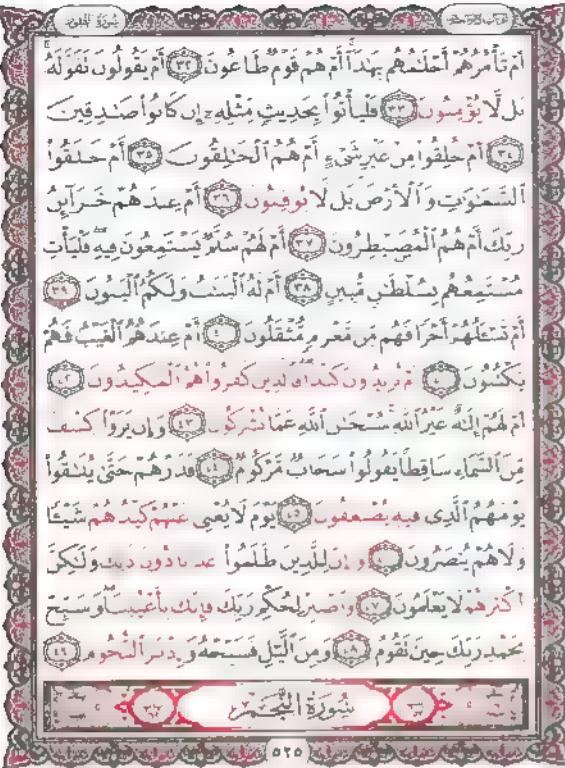 سورة الطور
أَمْ تَأْمُرُهُمْ أَحْلَٰمُهُم بِهَٰذَآ أَمْ هُمْ قَوْمٌ طَاغُونَ ٣٢ أَمْ يَقُولُونَ تَقَوَّلَهُۥ
بَل لَّا يُؤْمِنُونَ ٣٣ فَلْيَأْتُوا۟ بِحَدِيثٍ مِّثْلِهِۦٓ إِن كَانُوا۟ صَٰدِقِينَ
٣٤ أَمْ خُلِقُوا۟ مِنْ غَيْرِ شَىْءٍ أَمْ هُمُ ٱلْخَٰلِقُونَ ٣٥ أَمْ خَلَقُوا۟
ٱلسَّمَٰوَٰتِ وَٱلْأَرْضَ بَل لَّا يُوقِنُونَ ٣٦ أَمْ عِندَهُمْ خَزَآئِنُ
رَبِّكَ أَمْ هُمُ ٱلْمُصَۣيْطِرُونَ ٣٧ أَمْ لَهُمْ سُلَّمٌ يَسْتَمِعُونَ فِيهِ فَلْيَأْتِ
مُسْتَمِعُهُم بِسُلْطَٰنٍ مُّبِينٍ ٣٨ أَمْ لَهُ ٱلْبَنَٰتُ وَلَكُمُ ٱلْبَنُونَ ٣٩
أَمْ تَسْـَٔلُهُمْ أَجْرًا فَهُم مِّن مَّغْرَمٍ مُّثْقَلُونَ ٤٠ أَمْ عِندَهُمُ ٱلْغَيْبُ فَهُمْ
يَكْتُبُونَ ٤١ أَمْ يُرِيدُونَ كَيْدًا فَٱلَّذِينَ كَفَرُوا۟ هُمُ ٱلْمَكِيدُونَ ٤٢
أَمْ لَهُمْ إِلَٰهٌ غَيْرُ ٱللَّهِ سُبْحَٰنَ ٱللَّهِ عَمَّا يُشْرِكُونَ ٤٣ وَإِن يَرَوْا۟ كِسْفًا
مِّنَ ٱلسَّمَآءِ سَاقِطًا يَقُولُوا۟ سَحَابٌ مَّرْكُومٌ ٤٤ فَذَرْهُمْ حَتَّىٰ يُلَٰقُوا۟
يَوْمَهُمُ ٱلَّذِى فِيهِ يُصْعَقُونَ ٤٥ يَوْمَ لَا يُغْنِى عَنْهُمْ كَيْدُهُمْ شَيْـًٔا
وَلَا هُمْ يُنصَرُونَ ٤٦ وَإِنَّ لِلَّذِينَ ظَلَمُوا۟ عَذَابًا دُونَ ذَٰلِكَ وَلَٰكِنَّ
أَكْثَرَهُمْ لَا يَعْلَمُونَ ٤٧ وَٱصْبِرْ لِحُكْمِ رَبِّكَ فَإِنَّكَ بِأَعْيُنِنَا وَسَبِّحْ
بِحَمْدِ رَبِّكَ حِينَ تَقُومُ ٤٨ وَمِنَ ٱلَّيْلِ فَسَبِّحْهُ وَإِدْبَٰرَ ٱلنُّجُومِ ٤٩
سُورَةُ النَّجْمِ
٥٢٥